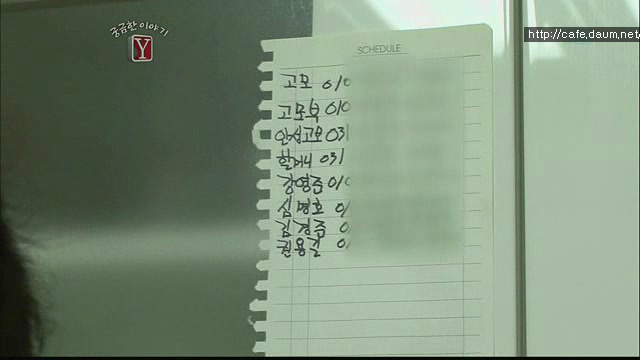 궁금한 이야기
Y
http://cafe.daum.net
SCHEDULE
고모 010
고모부 010
안성고모 031
할머니 031
강영준 010
심명호 01
김경줌 0
권용길 0